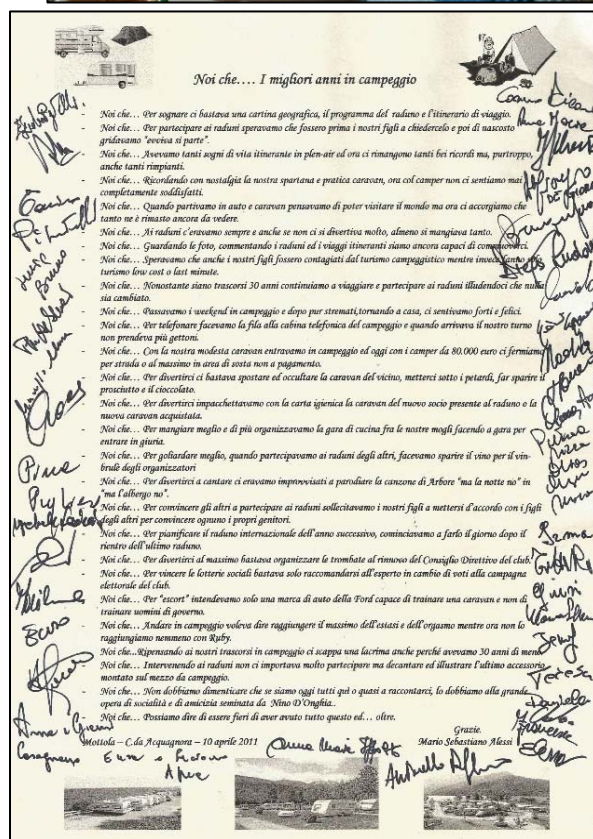 Noi che.... I migliori anni in campeggio
- Noi che... Per sognare ci bastava una cartina geografica, il programma del raduno e l'itinerario di viaggio.
- Noi che... Per partecipare ai raduni speravamo che fossero prima i nostri figli a chiedercelo e poi di nascosto
gridavamo "evviva si parte".
- Noi che... Avevamo tanti sogni di vita itinerante in plen-air ed ora ci rimangono tanti bei ricordi ma, purtroppo,
anche tanti rimpianti.
- Noi che... Ricordando con nostalgia la nostra spartana e pratica caravan, ora col camper non ci sentiamo mai
completamente soddisfatti.
- Noi che... Quando partivamo in auto e caravan pensavamo di poter visitare il mondo ma ora ci accorgiamo che
tanto ne è rimasto ancora da vedere.
- Noi che... Ai raduni c'eravamo sempre e anche se non ci si divertiva molto, almeno si mangiava tanto.
- Noi che... Guardando le foto, commentando i raduni ed i viaggi itineranti siamo ancora capaci di commuoverci.
- Noi che... Speravamo che anche i nostri figli fossero contagiati dal turismo campeggistico mentre invece fanno
turismo low cost o last minute.
- Noi che... Nonostante siano trascorsi 30 anni continuiamo a viaggiare e partecipare ai raduni illudendoci che nulla
sia cambiato.
- Noi che... Passavamo i weekend in campeggio e dopo pur stremati,tornando a casa, ci sentivamo forti e felici.
- Noi che... Per telefonare facevamo la fila alla cabina telefonica del campeggio e quando arrivava il nostro turno
non prendeva più gettoni.
- Noi che... Con la nostra modesta caravan entravamo in campeggio ed oggi con i camper da 80.000 euro ci fermiamo
per strada o al massimo in area di sosta non a pagamento.
- Noi che... Per divertirci ci bastava spostare ed occultare la caravan del vicino, metterci sotto i petardi, far sparire il
prosciutto e il cioccolato.
- Noi che... Per divertirci impacchettavamo con la carta igienica la caravan del nuovo socio presente al raduno e la
nuova caravan acquistata.
- Noi che... Per mangiare meglio e di più organizzavamo la gara di cucina fra le nostre mogli facendo a gara per
entrare in giuria.
- Noi che... Per goliardare meglio, quando partecipavamo ai raduni degli altri, facevamo sparire il vino per il vin-
brulè degli organizzatori
- Noi che... Per divertirci a cantare ci eravamo improvvisati a parodiare la canzone di Arbore "ma la notte no" in
"ma l'albergo no".
- Noi che... Per convincere gli altri a partecipare ai raduni sollecitavamo i nostri figli a mettersi d'accordo con i figli
degli altri per convincere ognuno i propri genitori.
- Noi che... Per pianificare il raduno internazionale dell'anno successivo, cominciavamo a farlo il giorno dopo il
rientro dell'ultimo raduno.
- Noi che... Per divertirci al massimo bastava organizzare le trombate al rinnovo del Consiglio Direttivo del club.
- Noi che... Per vincere le lotterie sociali bastava solo raccomandarsi all'esperto in cambio di voti alla campagna
elettorale del club.
- Noi che... Per "escort" intendevamo solo una marca di auto della Ford capace di trainare una caravan e non di
trainare uomini di governo.
- Noi che... Andare in campeggio voleva dire raggiungere il massimo dell'estasi e dell'orgasmo mentre ora non lo
raggiungiamo nemmeno con Ruby.
- Noi che...Ripensando ai nostri trascorsi in campeggio ci scappa una lacrima anche perché avevamo 30 anni di meno
- Noi che... Intervenendo ai raduni non ci importava molto partecipare ma decantare ed illustrare l'ultimo accessorio
montato sul mezzo da campeggio.
- Noi che... Non dobbiamo dimenticare che se siamo oggi tutti quì o quasi a raccontarci, lo dobbiamo alla grande
opera di socialità e di amicizia seminata da Nino D'Onghia..
- Noi che... Possiamo dire di essere fieri di aver avuto tutto questo ed... oltre.
Grazie.
Mottola – C.da Acquagnora – 10 aprile 2011
Mario Sebastiano Alessi
Bruno
Pina
Enzo
Irma
Teresa
Daniela
Elena